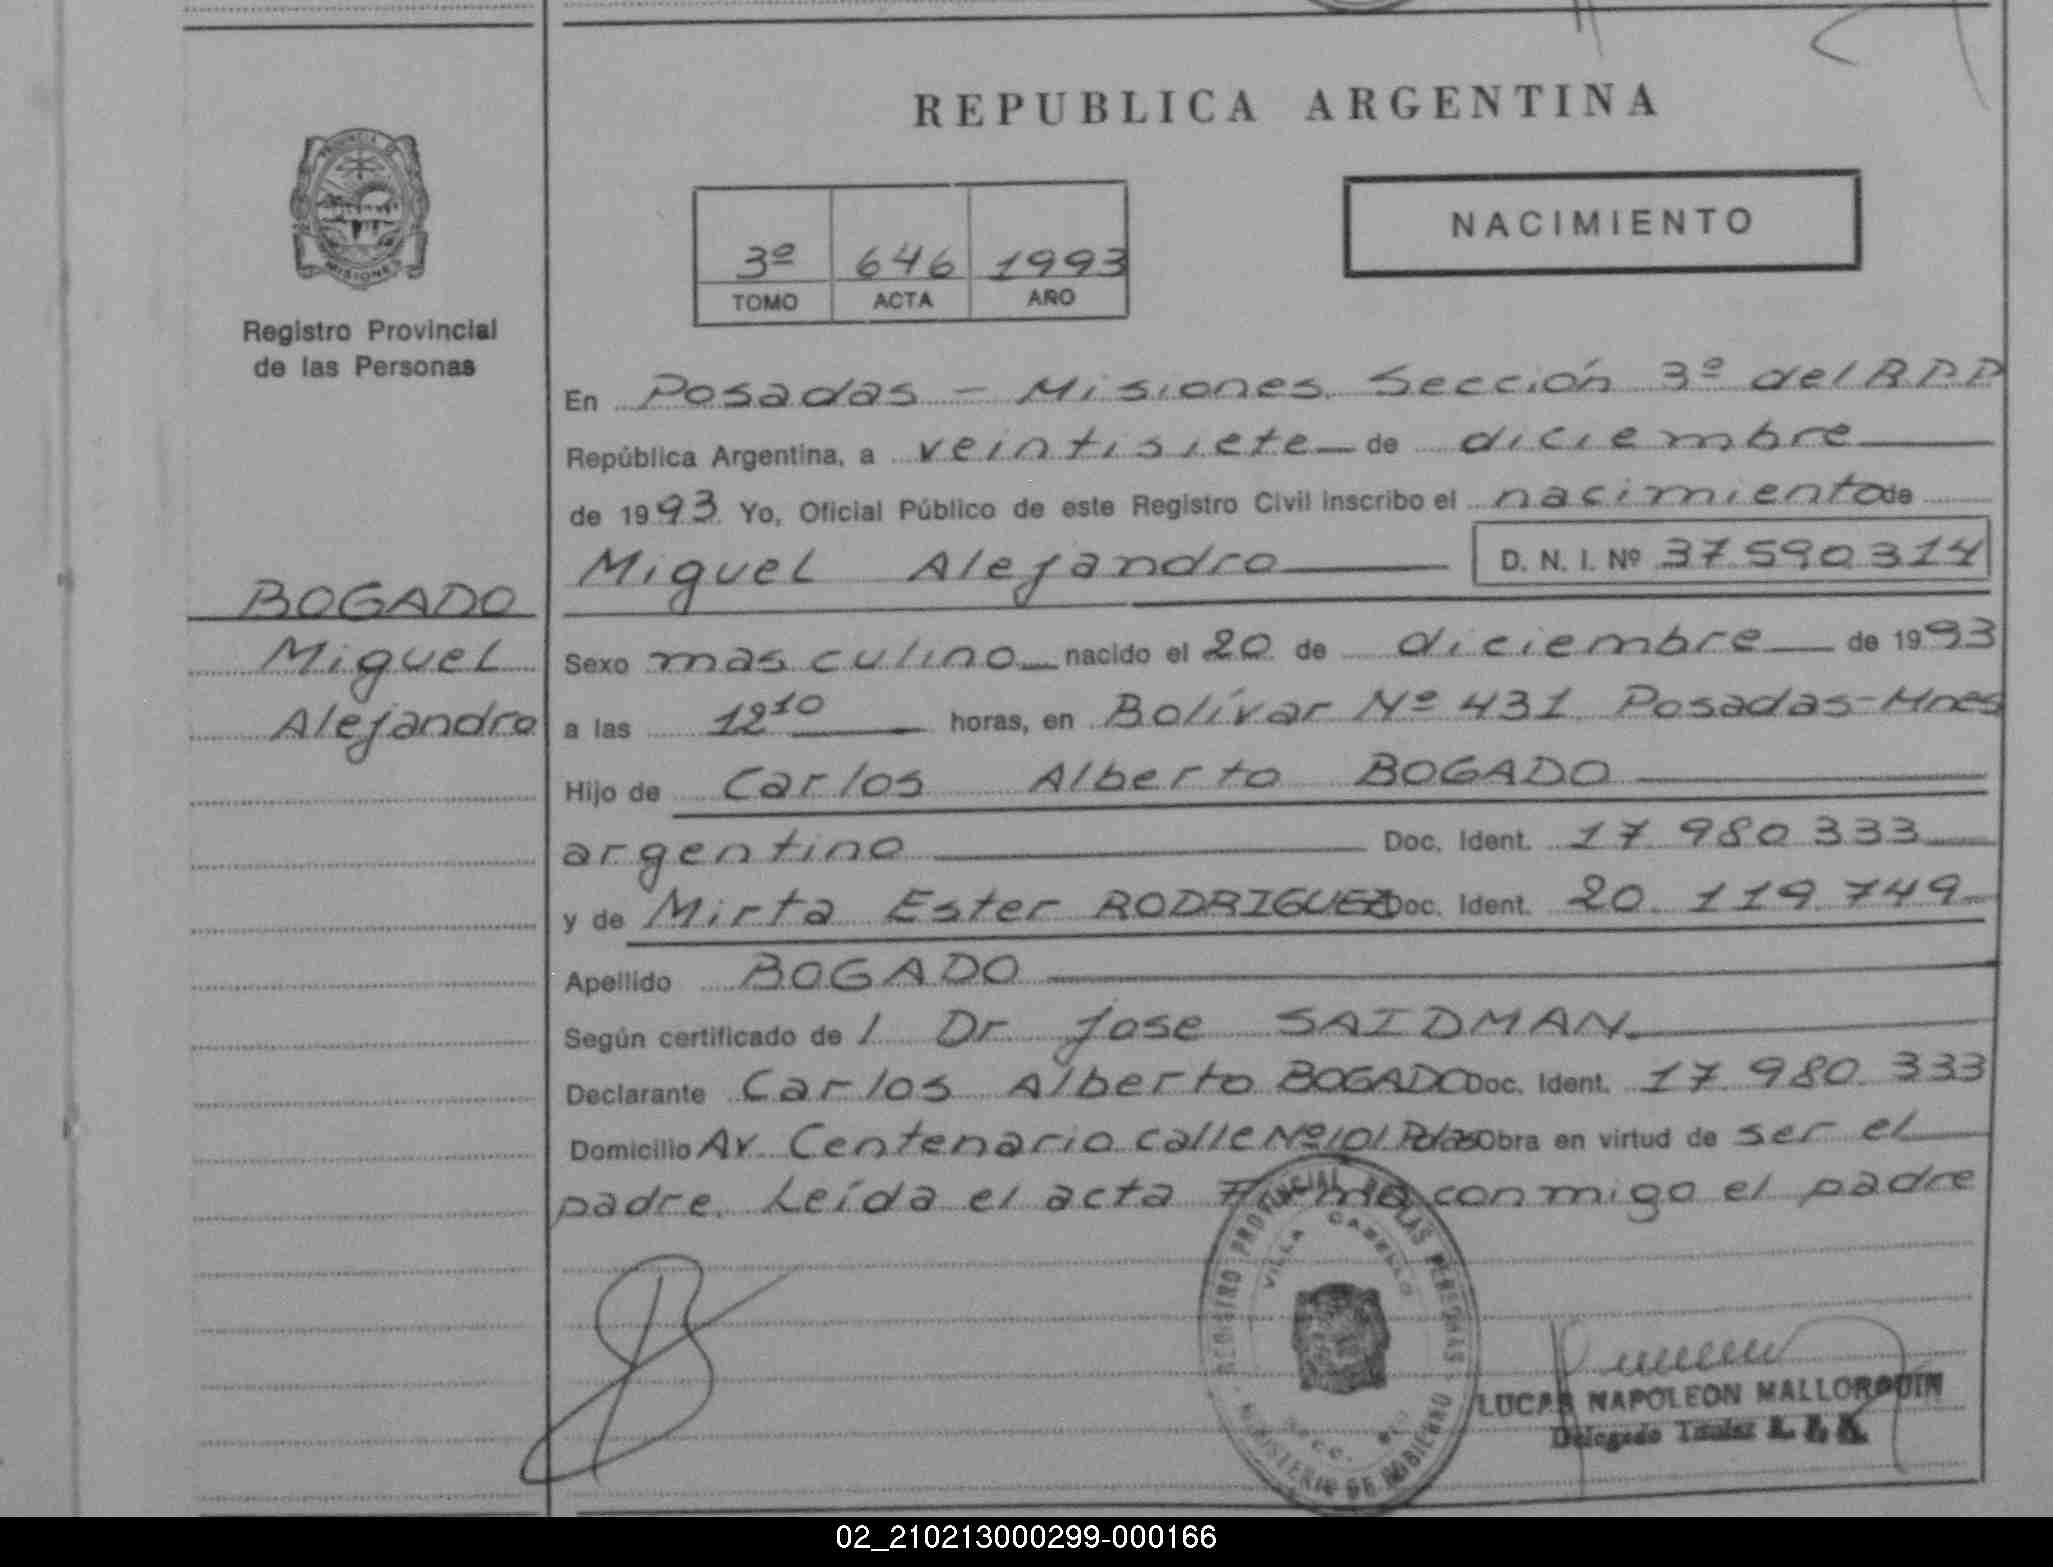 REPUBLICA ARGENTINA
NACIMIENTO
3º 646 1993
TOMO ACTA AÑO
PROVINCIA DE
MISIONES
Registro Provincial
de las Personas
BOGADO
Miguel
Alejandro
En Posadas - Misiones. Sección 3º del R.P.P
República Argentina, a veintisiete de diciembre
de 1993 Yo, Oficial Público de este Registro Civil inscribo el nacimiento de
Miguel Alejandro D. N. I. Nº 37.590.314
Sexo masculino nacido el 20 de diciembre de 1993
a las 12 10 horas, en Bolívar Nº 431 Posadas-Mnes
Hijo de Carlos Alberto BOGADO
argentino Doc. Ident. 17.980.333
y de Mirta Ester RODRIGUEZ Doc. Ident. 20.119.749
Apellido BOGADO
Según certificado de l Dr Jose SAIDMAN
Declarante Carlos Alberto BOGADO Doc. Ident. 17.980.333
Domicilio Av. Centenario calle Nº 101 Pdas Obra en virtud de ser el
padre. Leída el acta Firma conmigo el padre
REGISTRO PROVINCIAL DE LAS PERSONAS
VILLA CABELLO
SECC.
MINISTERIO DE GOBIERNO
LUCAS NAPOLEON MALLORQUIN
Delegado Titular R. P. P.
02_210213000299-000166